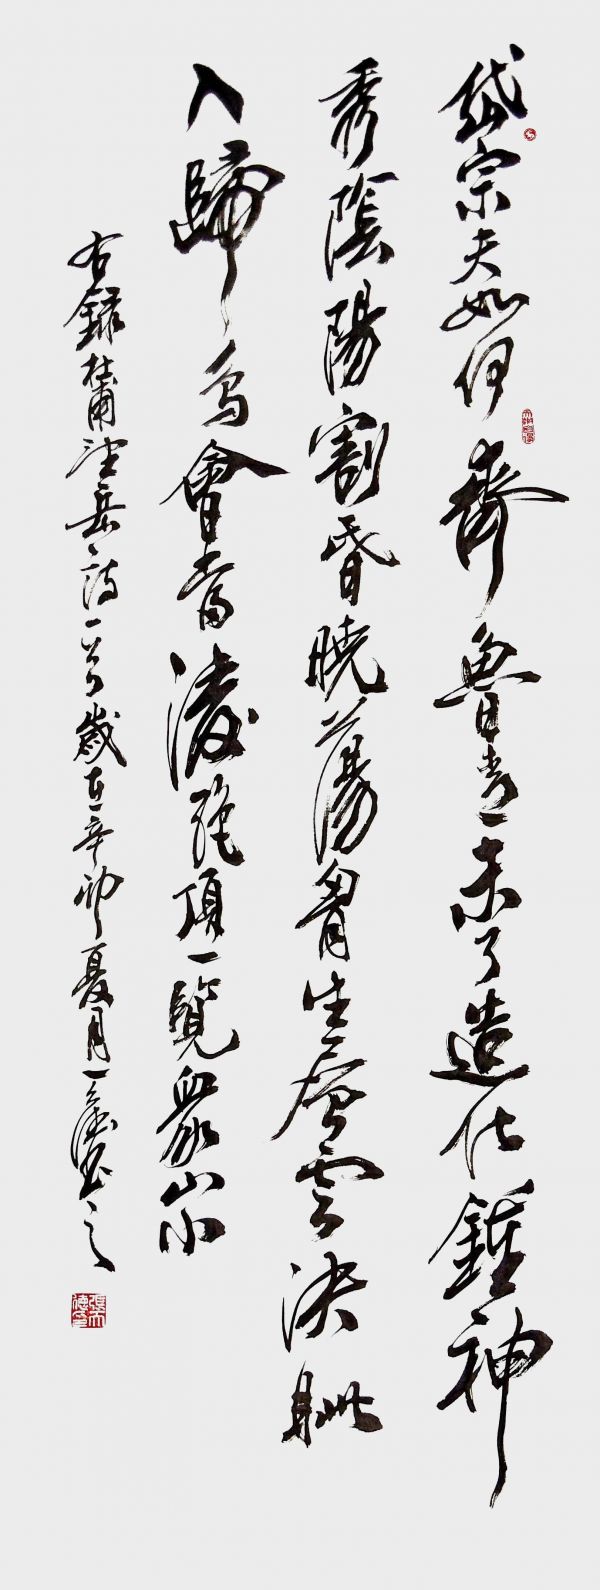 岱宗夫如何齊魯青未了造化鍾神
秀陰陽割昏曉蕩胷生層雲決眦
入歸鳥會當凌絕頂一覽眾山小
右錄杜甫望岳詩一首歲在辛卯夏月德書之